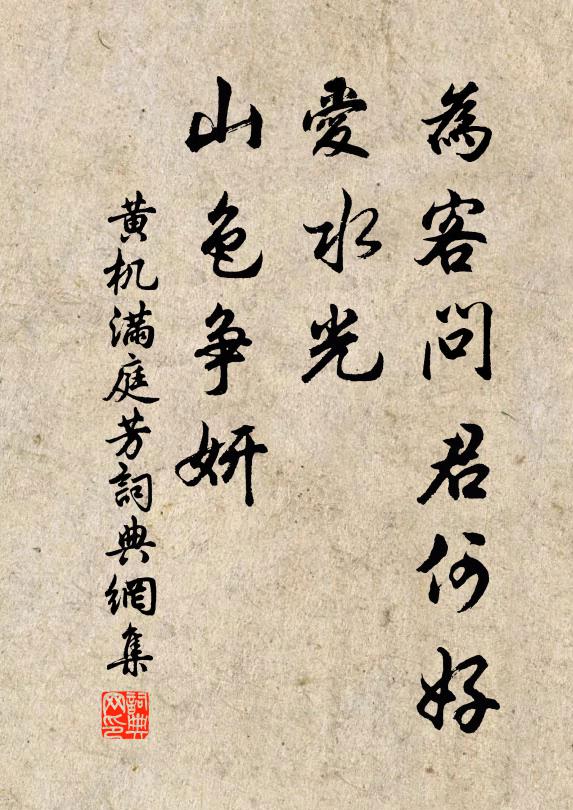 為客問君何好
愛水光
山色爭妍
黄机滿庭芳詞典網集
詞典
网印